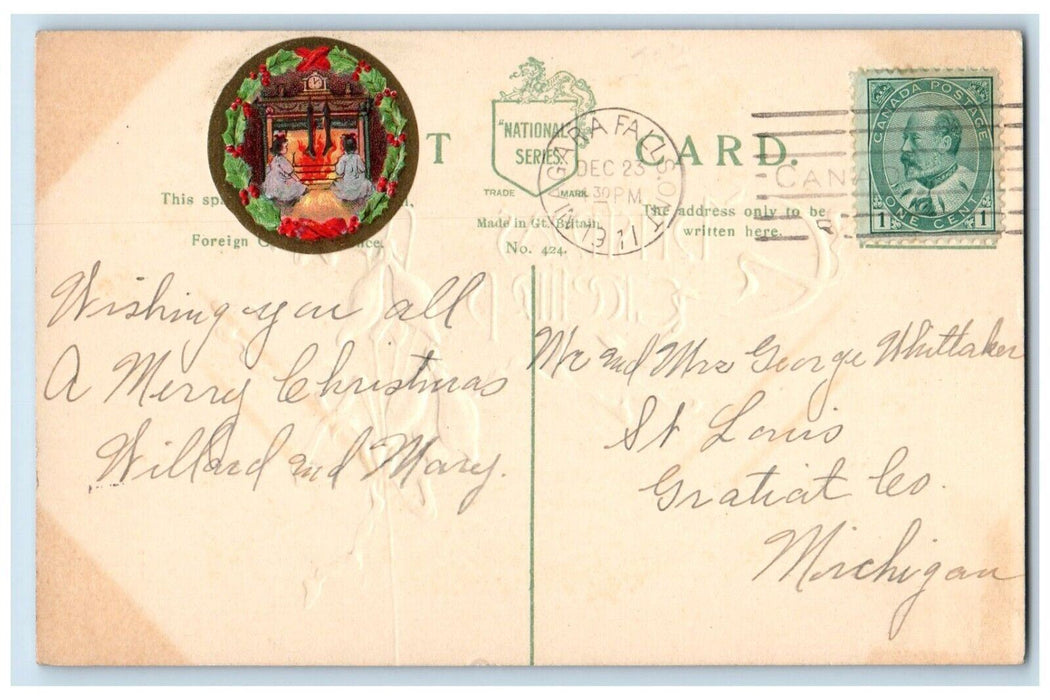 T CARD.
"NATIONAL
SERIES."
TRADE MARK
Made in Gt. Britain.
No. 424.
This
Foreign
The address only to be
written here.
NIAGARA FALLS ONT
DEC 23
30 PM
CANADA
CANADA POSTAGE
1 ONE CENT 1
Wishing you all
A Merry Christmas
Willard and Mary.
Mr and Mrs George Whittaker
St Louis
Gratiat Co.
Michigan